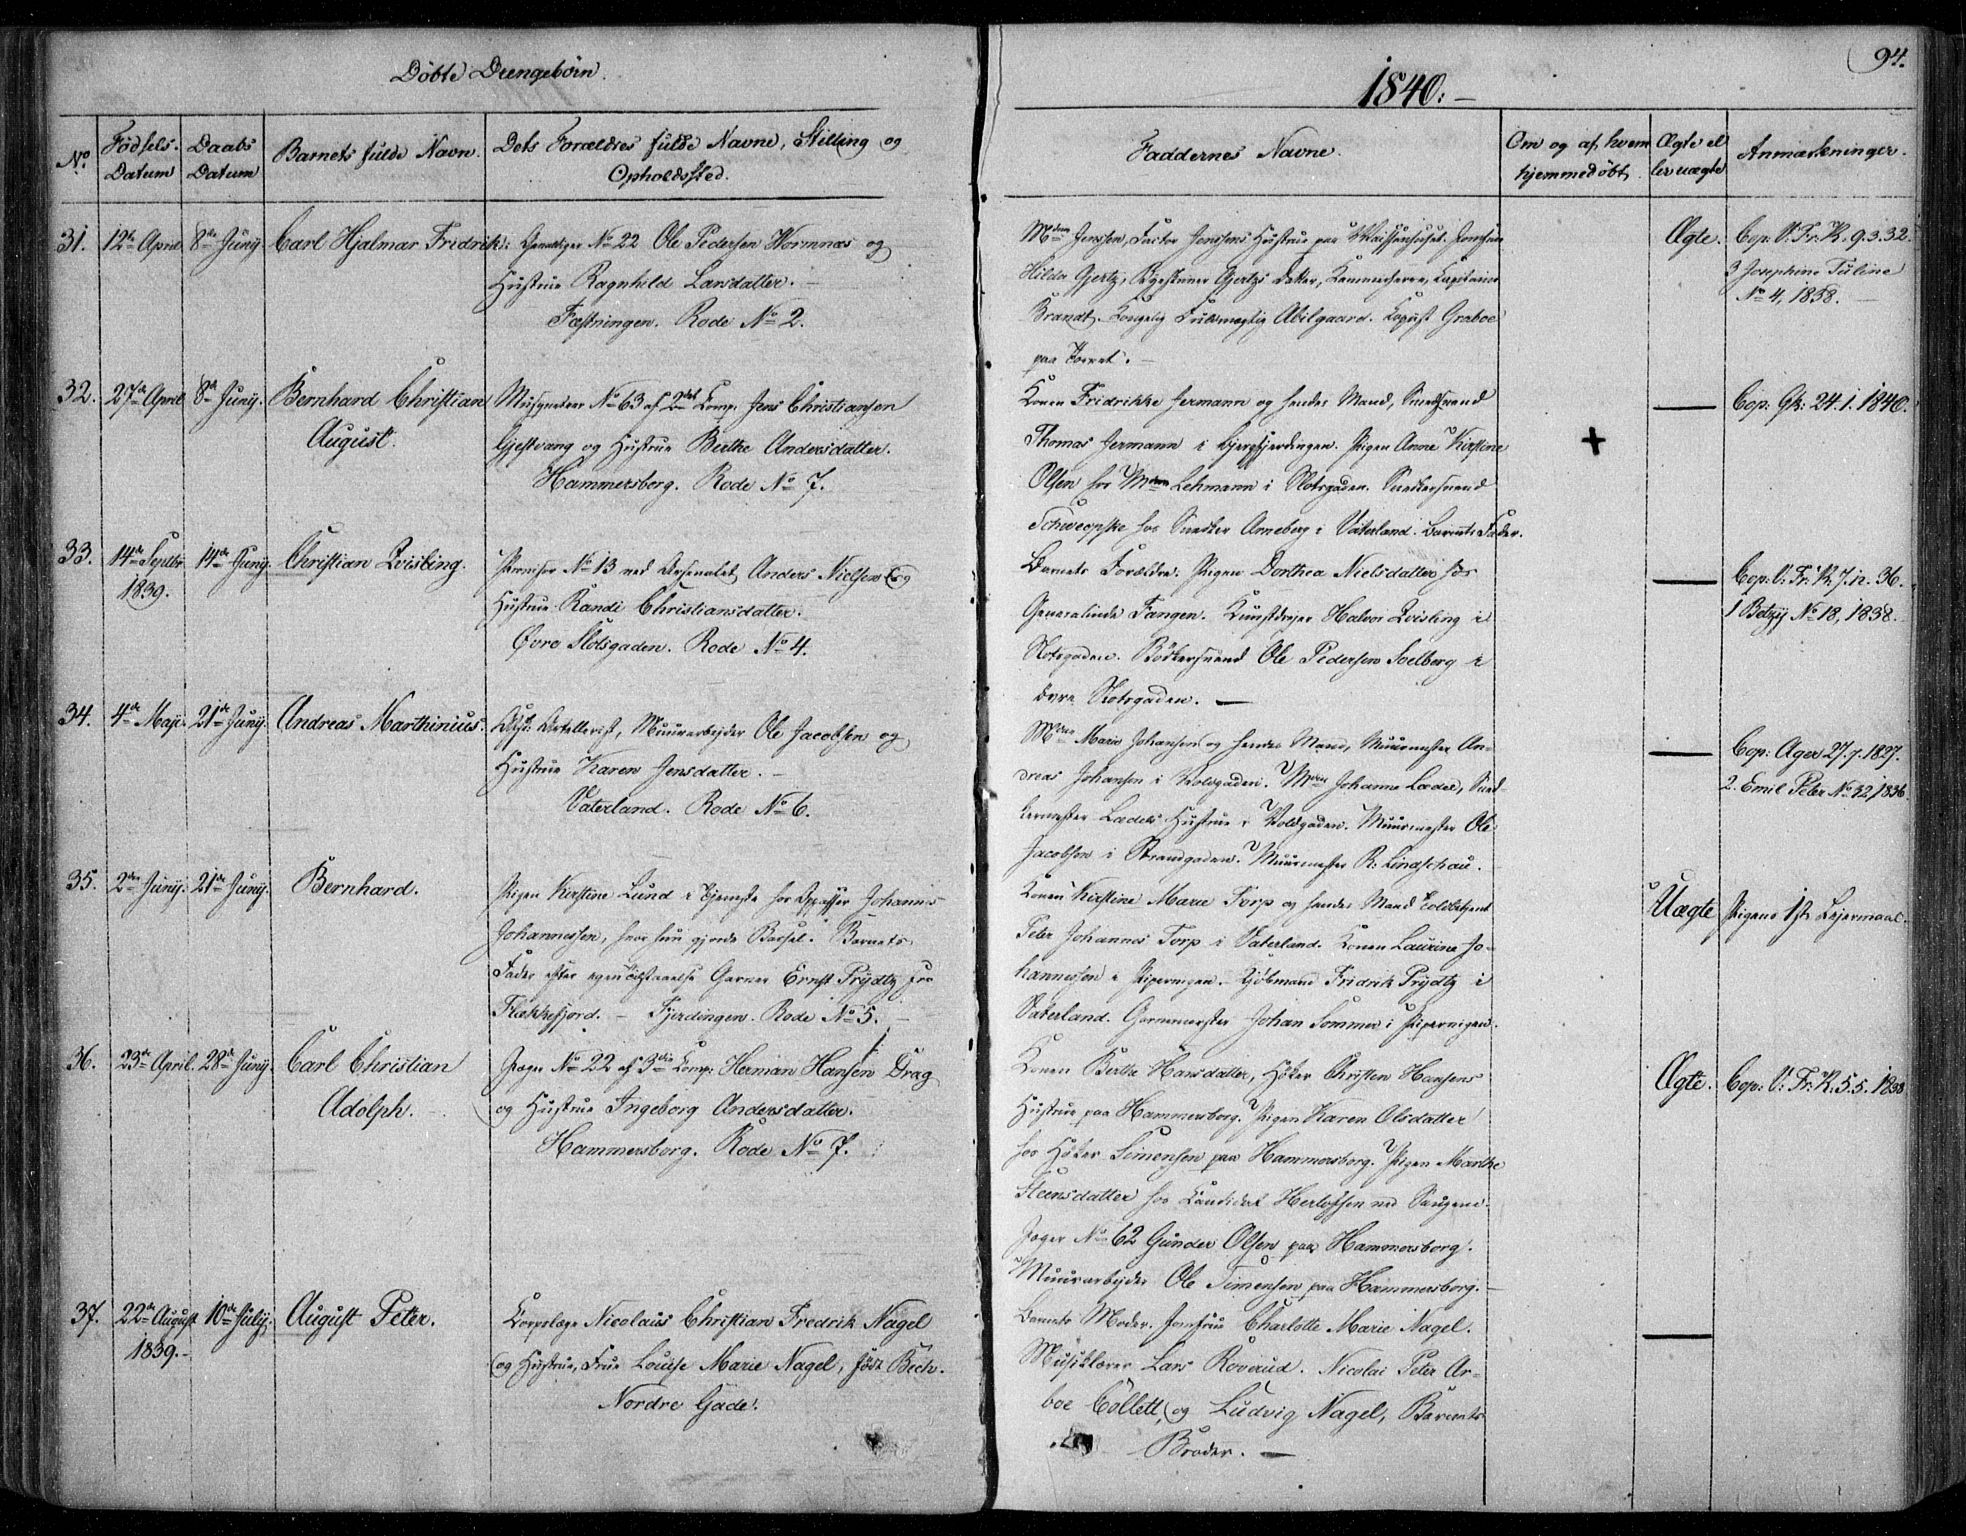 Døbte Drengebørn.
1840.
94.
No Fødsels-Datum Daabs Datum Barnets fulde Navn. Dets Forældres fulde Navne, Stilling og Opholdssted.
Faddernes Navne. Om og af hvem hjemmedøbt Ægte eller uægte Anmærkninger.
31. 12te April 8de Junij Carl Hjalmar Fridrik: No 22 Ole Pedersen Wormnæs og
Hustrue Ragnhild Larsdatter.
Fæstningen. Rode No 2.
Mdm Jenssen, Factor Jenssens Hustrue paa Jomfrue
Hilda Gjertz, Gjertzs Datter, Kammerherre, Kapitaine
Brandt. Fuldmægtig Abilgaard. Graboe
paa Torvet.
Ægte. Cop: V: Fr: K. 9.3.32.
3 Josephine Tuline
No 4, 1838.
32. 27de April 8de Junij. Bernhard Christian
August.
Musqueteer No 63 af 2det Comp: Jens Christiansen
Gjestvang og Hustrue Berthe Andersdatter.
Hammersborg. Rode No 7.
Konen Fridrikke Hermann og hendes Mand, Smedsvend
Thomas Hermann i Pigen Anne Kirstine
Olsen hos Mdm Lehmann i Slotsgaden. Snedkersvend
Schweopske hos Snedker Arneberg i Vaterland. Barnets Fader.
+
Cop: Gk: 24.1.1840.
33. 14de Septbr 1839. 14de Junij. Christian Qvisling.
No 13 ved Arsenalet Anders Nielsen og
Hustrue Randi Christiansdatter.
Øvre Slotsgaden. Rode No 4.
Barnets Forældre. Pigen Dorthea Nielsdatter hos
Generalinde Fangen. Kunstdrejer Halvor Qvisling i
Slotsgaden. Bødkersvend Ole Pedersen Solberg i
øvre Slotsgaden.
Cop: V: Fr: K. 7.12.36.
1 Betzy No 18, 1838.
34. 4de Maji. 21de Junij. Andreas Marthinius.
Artellerist, Muurarbejder Ole Jacobsen og
Hustrue Karen Jensdatter.
Vaterland. Rode No 6.
Mdm Marie Johansen og hendes Mand, Muurmester An-
dreas Johansen i Voldgaden. Mdm Johanne Lædel, Sned-
kermester Lædels Hustrue i Voldgaden. Muurmester Ole
Jacobsen i Strandgaden. Muurmester R: Lindschau.
Cop: Ager 27.7.1827.
2. Emil Peter No 32, 1836.
35. 2den Junij. 21de Junij. Bernhard.
Pigen Kirstine Lund i Tjeneste hos Opasser Johannes
Johannessen, hvor hun gjorde Barsel. Barnets
Fader efter egen Garver Ernst Prydtz fra
Flekkefjord. - Fjerdingen. Rode No 5.
Konen Kirstine Marie Torp og hendes Mand Toldbetjent
Peter Johannes Torp i Vaterland. Konen Laurine Jo-
hannessen i Pipervigen. Kjøbmand Fridrik Prydtz i
Vaterland. Garvermester Johan Sommer i Pipervigen.
Uægte Pigens 1ste Lejermaal.
36. 23de April. 28de Junij. Carl Christian
Adolph.
Jæger No 22 af 3die Comp: Herman Hansen Drag
og Hustrue Ingeborg Andersdatter.
Hammersborg. Rode No 7.
Konen Berthe Hansdatter, Høker Christen Hansens
Hustrue paa Hammersborg. Pigen Karen Olsdatter
hos Høker Simensen paa Hammersborg. Pigen Marthe
Steensdatter hos Candidat Herlofsen ved
Jæger No 62 Gunder Olsen paa Hammersborg.
Muurarbejder Ole Simensen paa Hammersborg.
Ægte. Cop: V: Fr: K. 5.5.1838
37. 22de August 1839. 10de Julij. August Peter.
Corpslæge Nicolaus Christian Fredrik Nagel
og Hustrue, Frue Louise Marie Nagel, født Bech.
Nordre Gade.
Barnets Moder. Jomfrue Charlotte Marie Nagel.
Musiklærer Lars Roverud. Nicolai Peter Ar-
boe Collett, og Ludvig Nagel, Barnets
Broder.